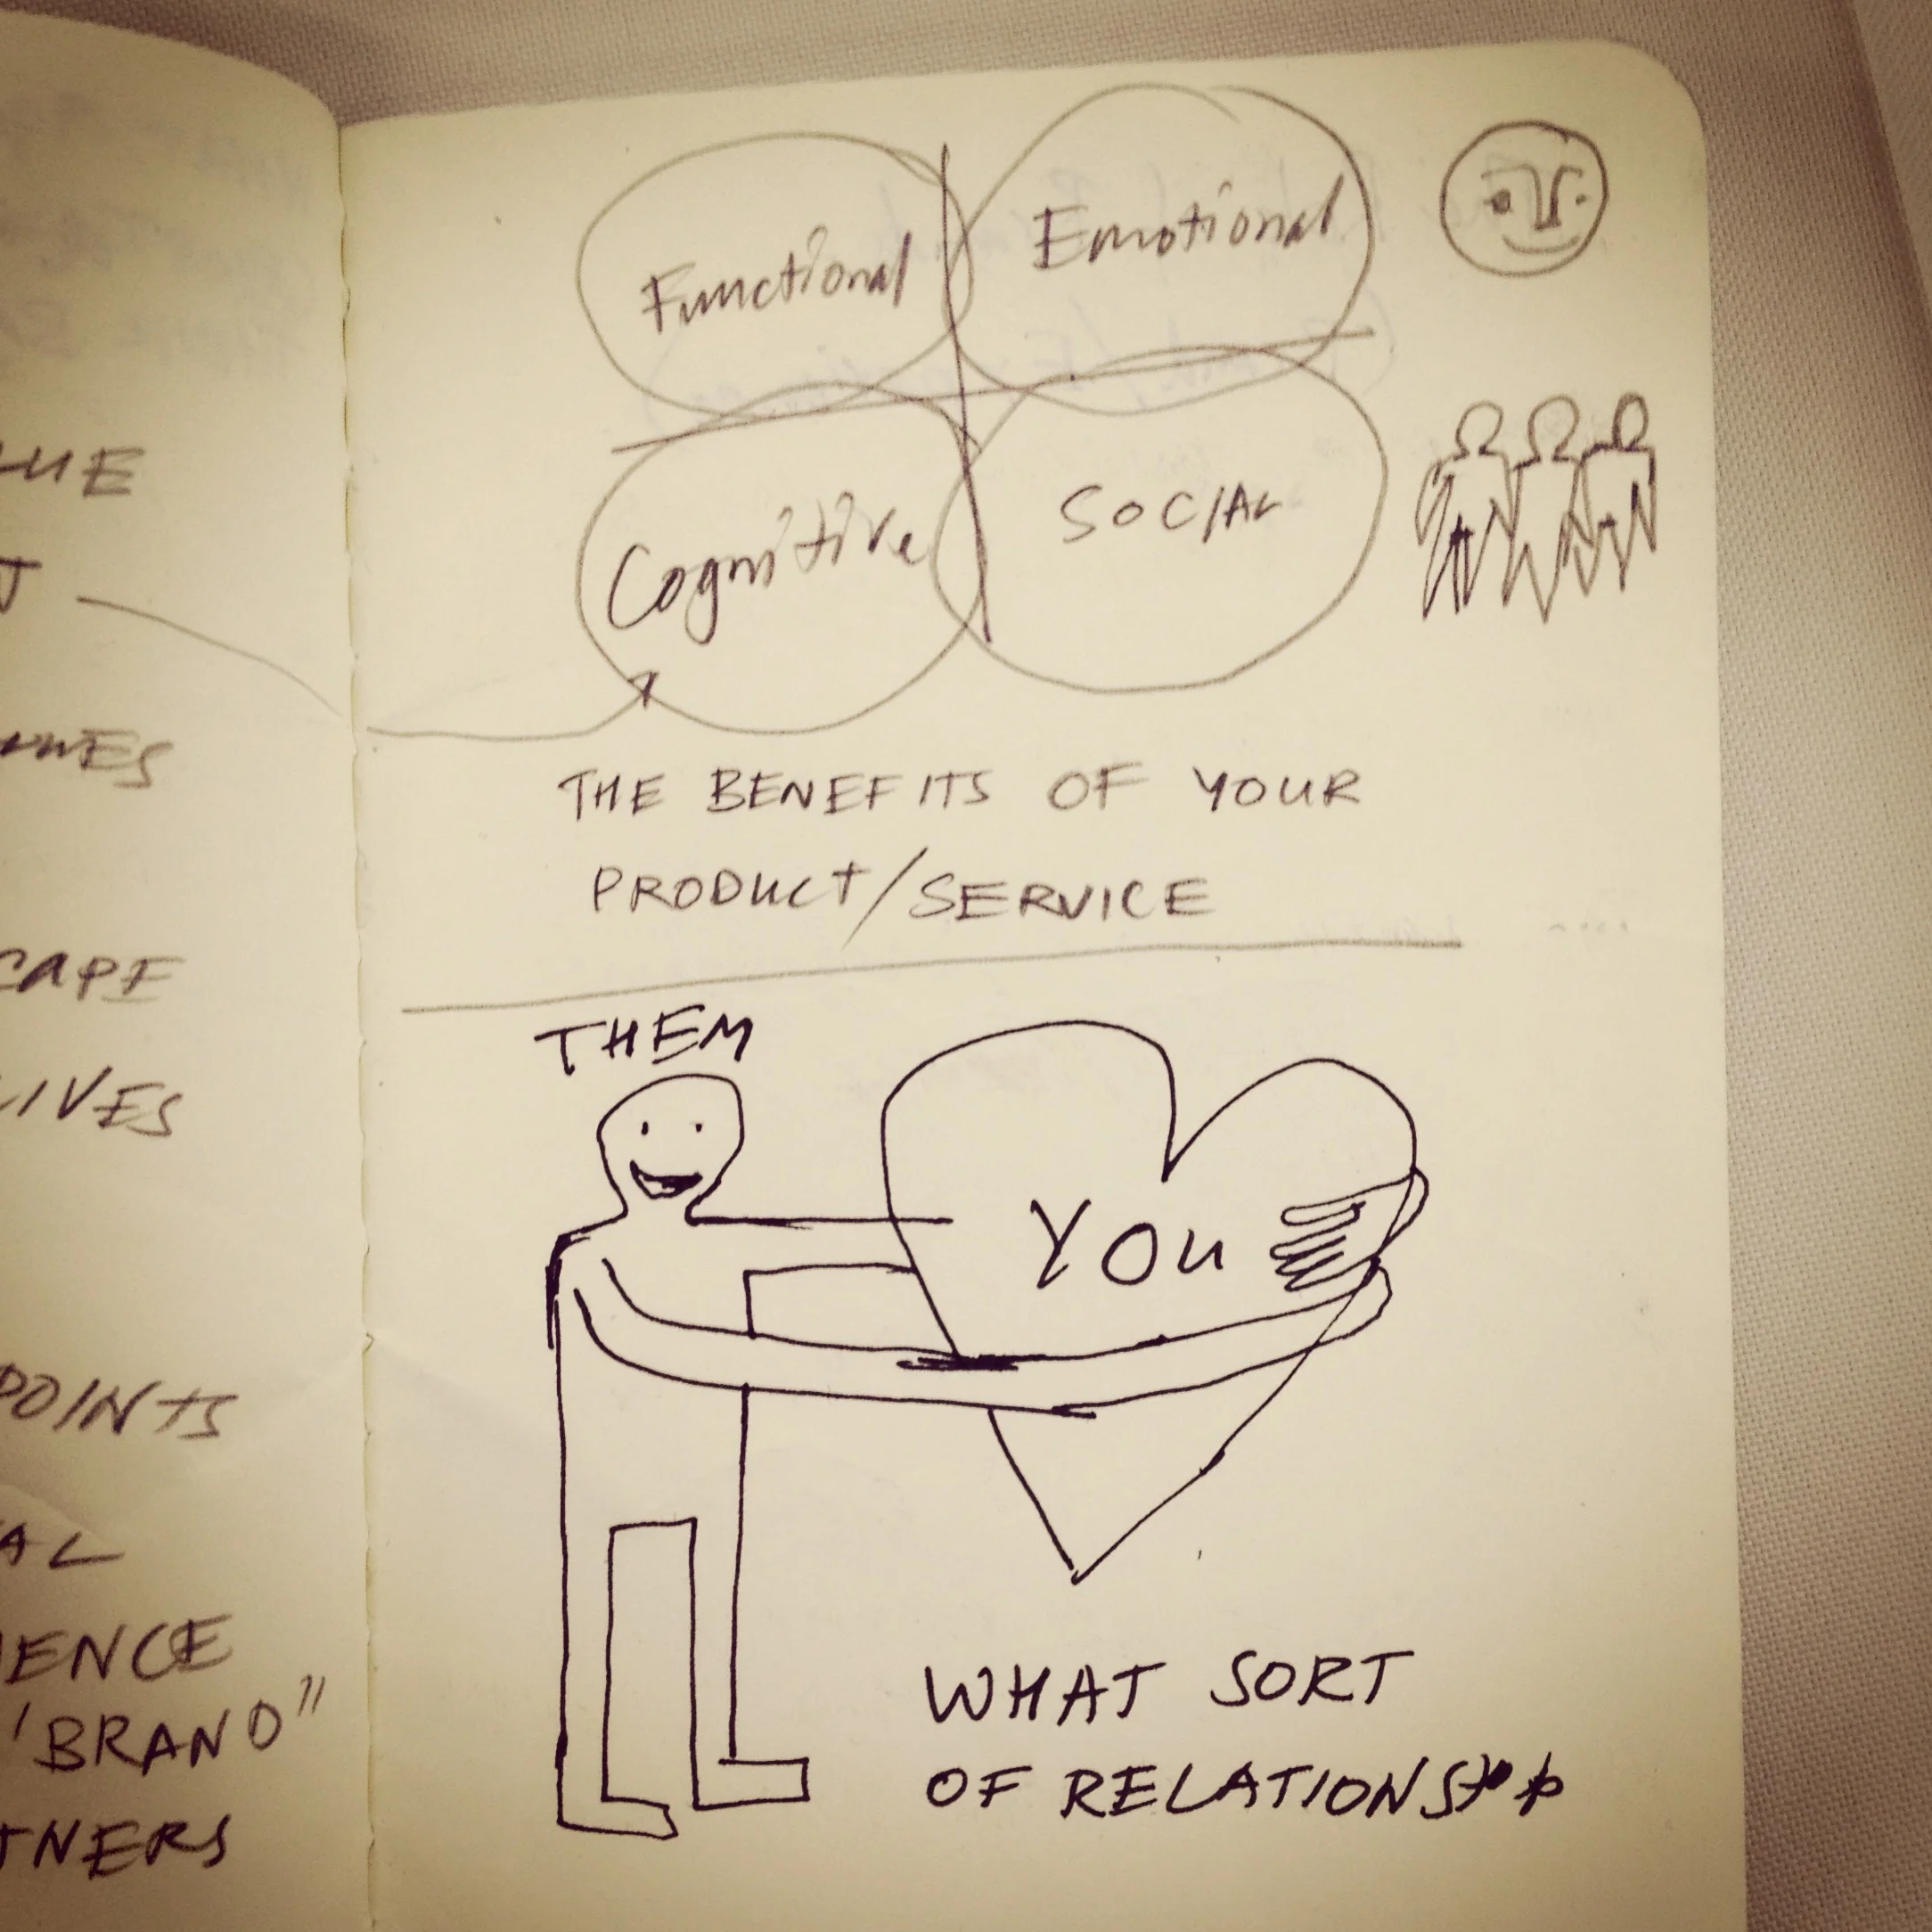 LUE
CAPE
LIVES
POINTS
AL
IENCE
"BRAND"
TNERS
Functional
Emotional
Cognitive
SOCIAL
THE BENEFITS OF YOUR
PRODUCT/SERVICE
THEM
YOU
WHAT SORT
OF RELATIONSHIP